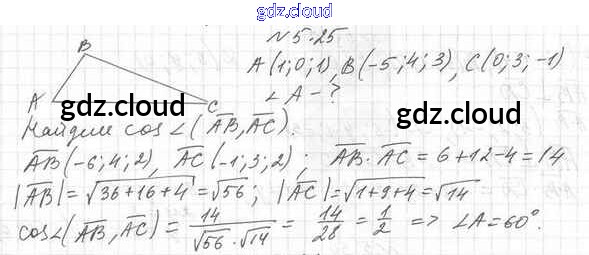 gdz.cloud
N 5.25
A(1;0;1), B(-5;4;3), C(0;3;-1)
∠A-?
B
A
C
gdz.cloud
gdz.cloud
Найдем cos∠(AB,AC).
AB(-6;4;2), AC(-1;3;2); AB·AC=6+12-4=14
|AB|=√36+16+4=√56; |AC|=√1+9+4=√14
cos∠(AB,AC)=14/√56·√14=14/28=1/2 => ∠A=60°.